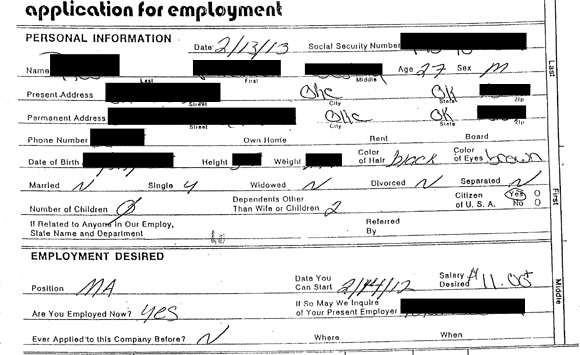 application for employment
PERSONAL INFORMATION Date 2/13/13 Social Security Number
Name Age 27 Sex M
Last First Middle
Present Address Okc OK
Street City State Zip
Permanent Address Okc OK
Street City State Zip
Phone Number Own Home Rent Board
Date of Birth Height Weight Color of Hair black Color of Eyes brown
Married N Single y Widowed N Divorced N Separated N
Number of Children 0 Dependents Other Than Wife or Children 2 Citizen of U. S. A. Yes O No O
If Related to Anyone in Our Employ, State Name and Department Referred By
EMPLOYMENT DESIRED
Position MA Date You Can Start 2/14/12 Salary Desired $11.00
Are You Employed Now? yes If So May We Inquire of Your Present Employer
Ever Applied to this Company Before? N Where When
Last
First
Middle